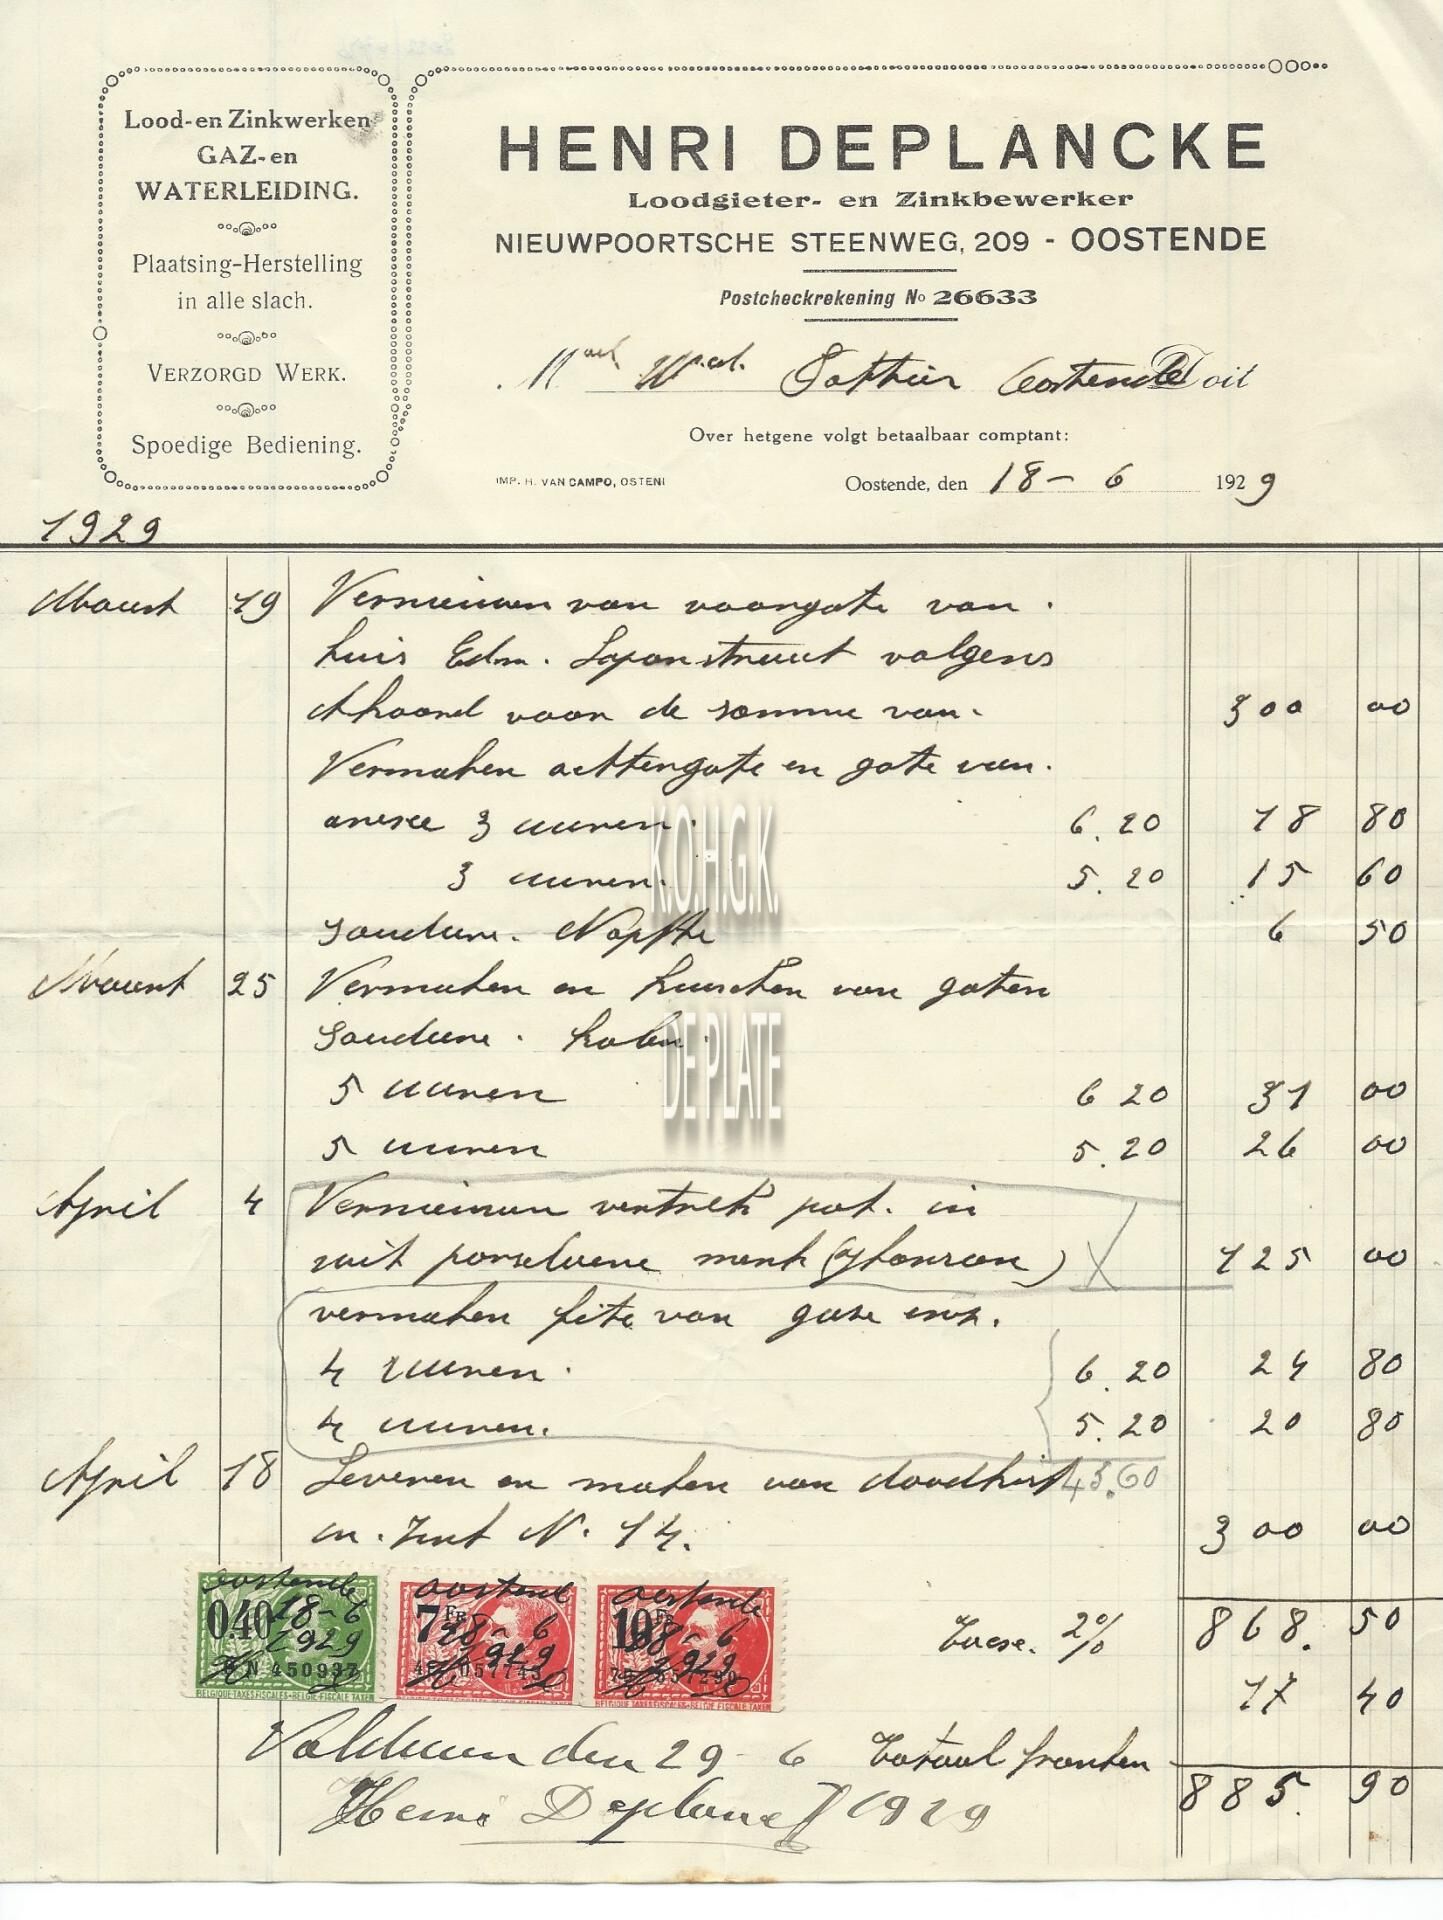 Lood-en Zinkwerken
GAZ-en
WATERLEIDING.
Plaatsing-Herstelling
in alle slach.
VERZORGD WERK.
Spoedige Bediening.
HENRI DEPLANCKE
Loodgieter- en Zinkbewerker
NIEUWPOORTSCHE STEENWEG, 209 - OOSTENDE
Postcheckrekening No 26633
Oostende Doit
Over hetgene volgt betaalbaar comptant:
IMP. H. VAN CAMPO, OSTEND
Oostende, den 18 - 6 1929
1929
Maart 19 Vernieuwen van voorgote van.
huis Edm. Laponstraat volgens
Akoord voor de somme van. 300 00
Vermaken achtergote en gote van.
anexe 3 uuren. 6.20 18 80
3 uuren. 5.20 15 60
soudure. Napfte 6 50
Maart 25 Vermaken en kuischen van goten
Soudure.
5 uuren 6 20 31 00
5 uuren 5.20 26 00
April 4 Vernieuwen vertrek pot. in
wit porseleene merk ( ) X 125 00
vermaken fite van gaze enz.
4 uuren. 6.20 24 80
4 uuren. 5.20 20 80
April 18 Leveren en maken van doodkist 43.60
in. Zink N. 14. 300 00
868. 50
Taxe. 2% 17 40
Totaal franken 885. 90
oostende 18-6 1929
0.40
N 450937
BELGIQUE-TAXES FISCALES-BELGIE-FISCALE TAXEN
oostende 18-6 1929
7 FR
oostende 18-6 1929
10 FR
BELGIQUE TAXES FISCALES-BELGIE FISCALE TAXEN
Voldaan den 29 - 6
Henri Deplancke 1929
K.O.H.G.K.
DE PLATE